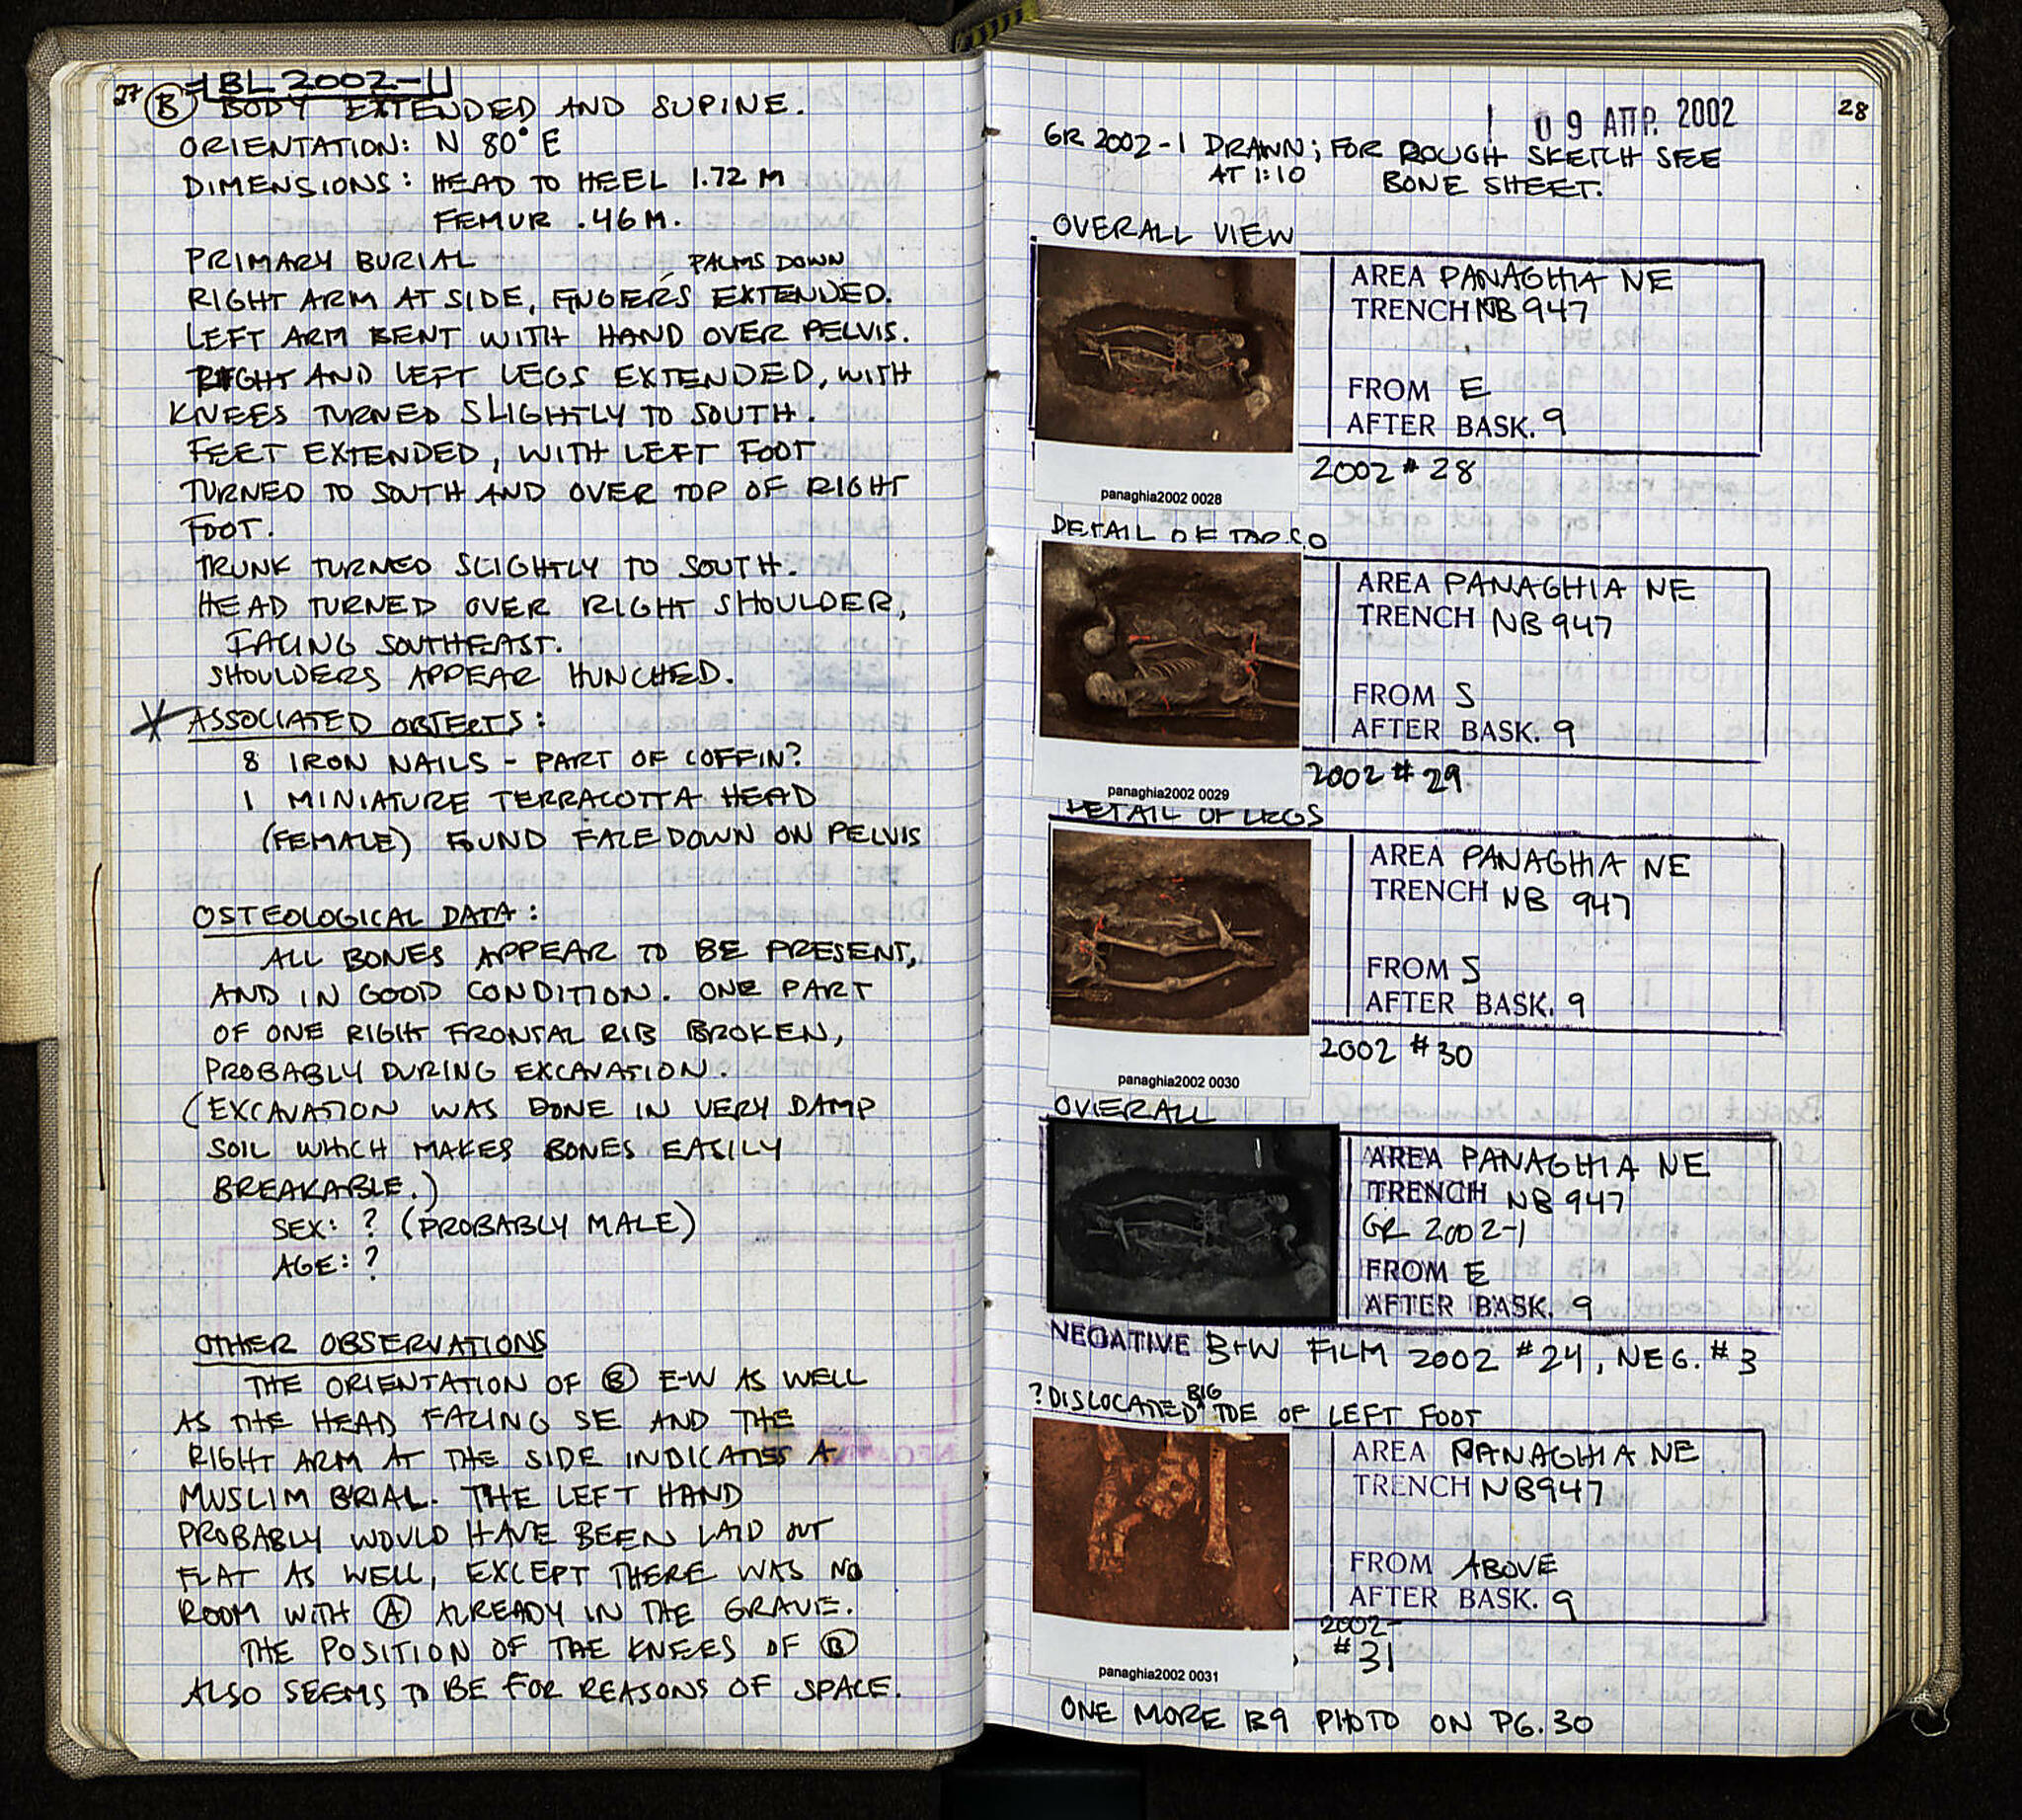 27
BL 2002-11
(B) BODY EXTENDED AND SUPINE.
ORIENTATION: N 80° E
DIMENSIONS: HEAD TO HEEL 1.72 M
FEMUR .46 M.
PRIMARY BURIAL
PALMS DOWN
RIGHT ARM AT SIDE, FINGERS EXTENDED.
LEFT ARM BENT WITH HAND OVER PELVIS.
RIGHT AND LEFT LEGS EXTENDED, WITH
KNEES TURNED SLIGHTLY TO SOUTH.
FEET EXTENDED, WITH LEFT FOOT
TURNED TO SOUTH AND OVER TOP OF RIGHT
FOOT.
TRUNK TURNED SLIGHTLY TO SOUTH.
HEAD TURNED OVER RIGHT SHOULDER,
FACING SOUTHEAST.
SHOULDERS APPEAR HUNCHED.
ASSOCIATED OBJECTS:
8 IRON NAILS - PART OF COFFIN?
1 MINIATURE TERRACOTTA HEAD
(FEMALE) FOUND FACE DOWN ON PELVIS
OSTEOLOGICAL DATA:
ALL BONES APPEAR TO BE PRESENT,
AND IN GOOD CONDITION. ONE PART
OF ONE RIGHT FRONTAL RIB BROKEN,
PROBABLY DURING EXCAVATION.
(EXCAVATION WAS DONE IN VERY DAMP
SOIL WHICH MAKES BONES EASILY
BREAKABLE.)
SEX: ? (PROBABLY MALE)
AGE: ?
OTHER OBSERVATIONS
THE ORIENTATION OF (B) E-W AS WELL
AS THE HEAD FACING SE AND THE
RIGHT ARM AT THE SIDE INDICATES A
MUSLIM BRIAL. THE LEFT HAND
PROBABLY WOULD HAVE BEEN LAID OUT
FLAT AS WELL, EXCEPT THERE WAS NO
ROOM WITH (A) ALREADY IN THE GRAVE.
THE POSITION OF THE KNEES OF (B)
ALSO SEEMS TO BE FOR REASONS OF SPACE.
28
09 ΑΠΡ. 2002
GR 2002-1 DRAWN; FOR ROUGH SKETCH SEE
AT 1:10 BONE SHEET.
OVERALL VIEW
AREA PANAGHIA NE
TRENCH NB 947
FROM E
AFTER BASK. 9
2002 # 28
panaghia2002 0028
DETAIL OF TORSO
AREA PANAGHIA NE
TRENCH NB 947
FROM S
AFTER BASK. 9
2002 # 29
panaghia2002 0029
DETAIL OF LEGS
AREA PANAGHIA NE
TRENCH NB 947
FROM S
AFTER BASK. 9
2002 # 30
panaghia2002 0030
OVERALL
AREA PANAGHIA NE
TRENCH NB 947
GR 2002-1
FROM E
AFTER BASK. 9
NEGATIVE B+W FILM 2002 #24, NEG. #3
BIG
? DISLOCATED TOE OF LEFT FOOT
AREA PANAGHIA NE
TRENCH NB947
FROM ABOVE
AFTER BASK. 9
2002-
#31
panaghia2002 0031
ONE MORE B9 PHOTO ON PG. 30